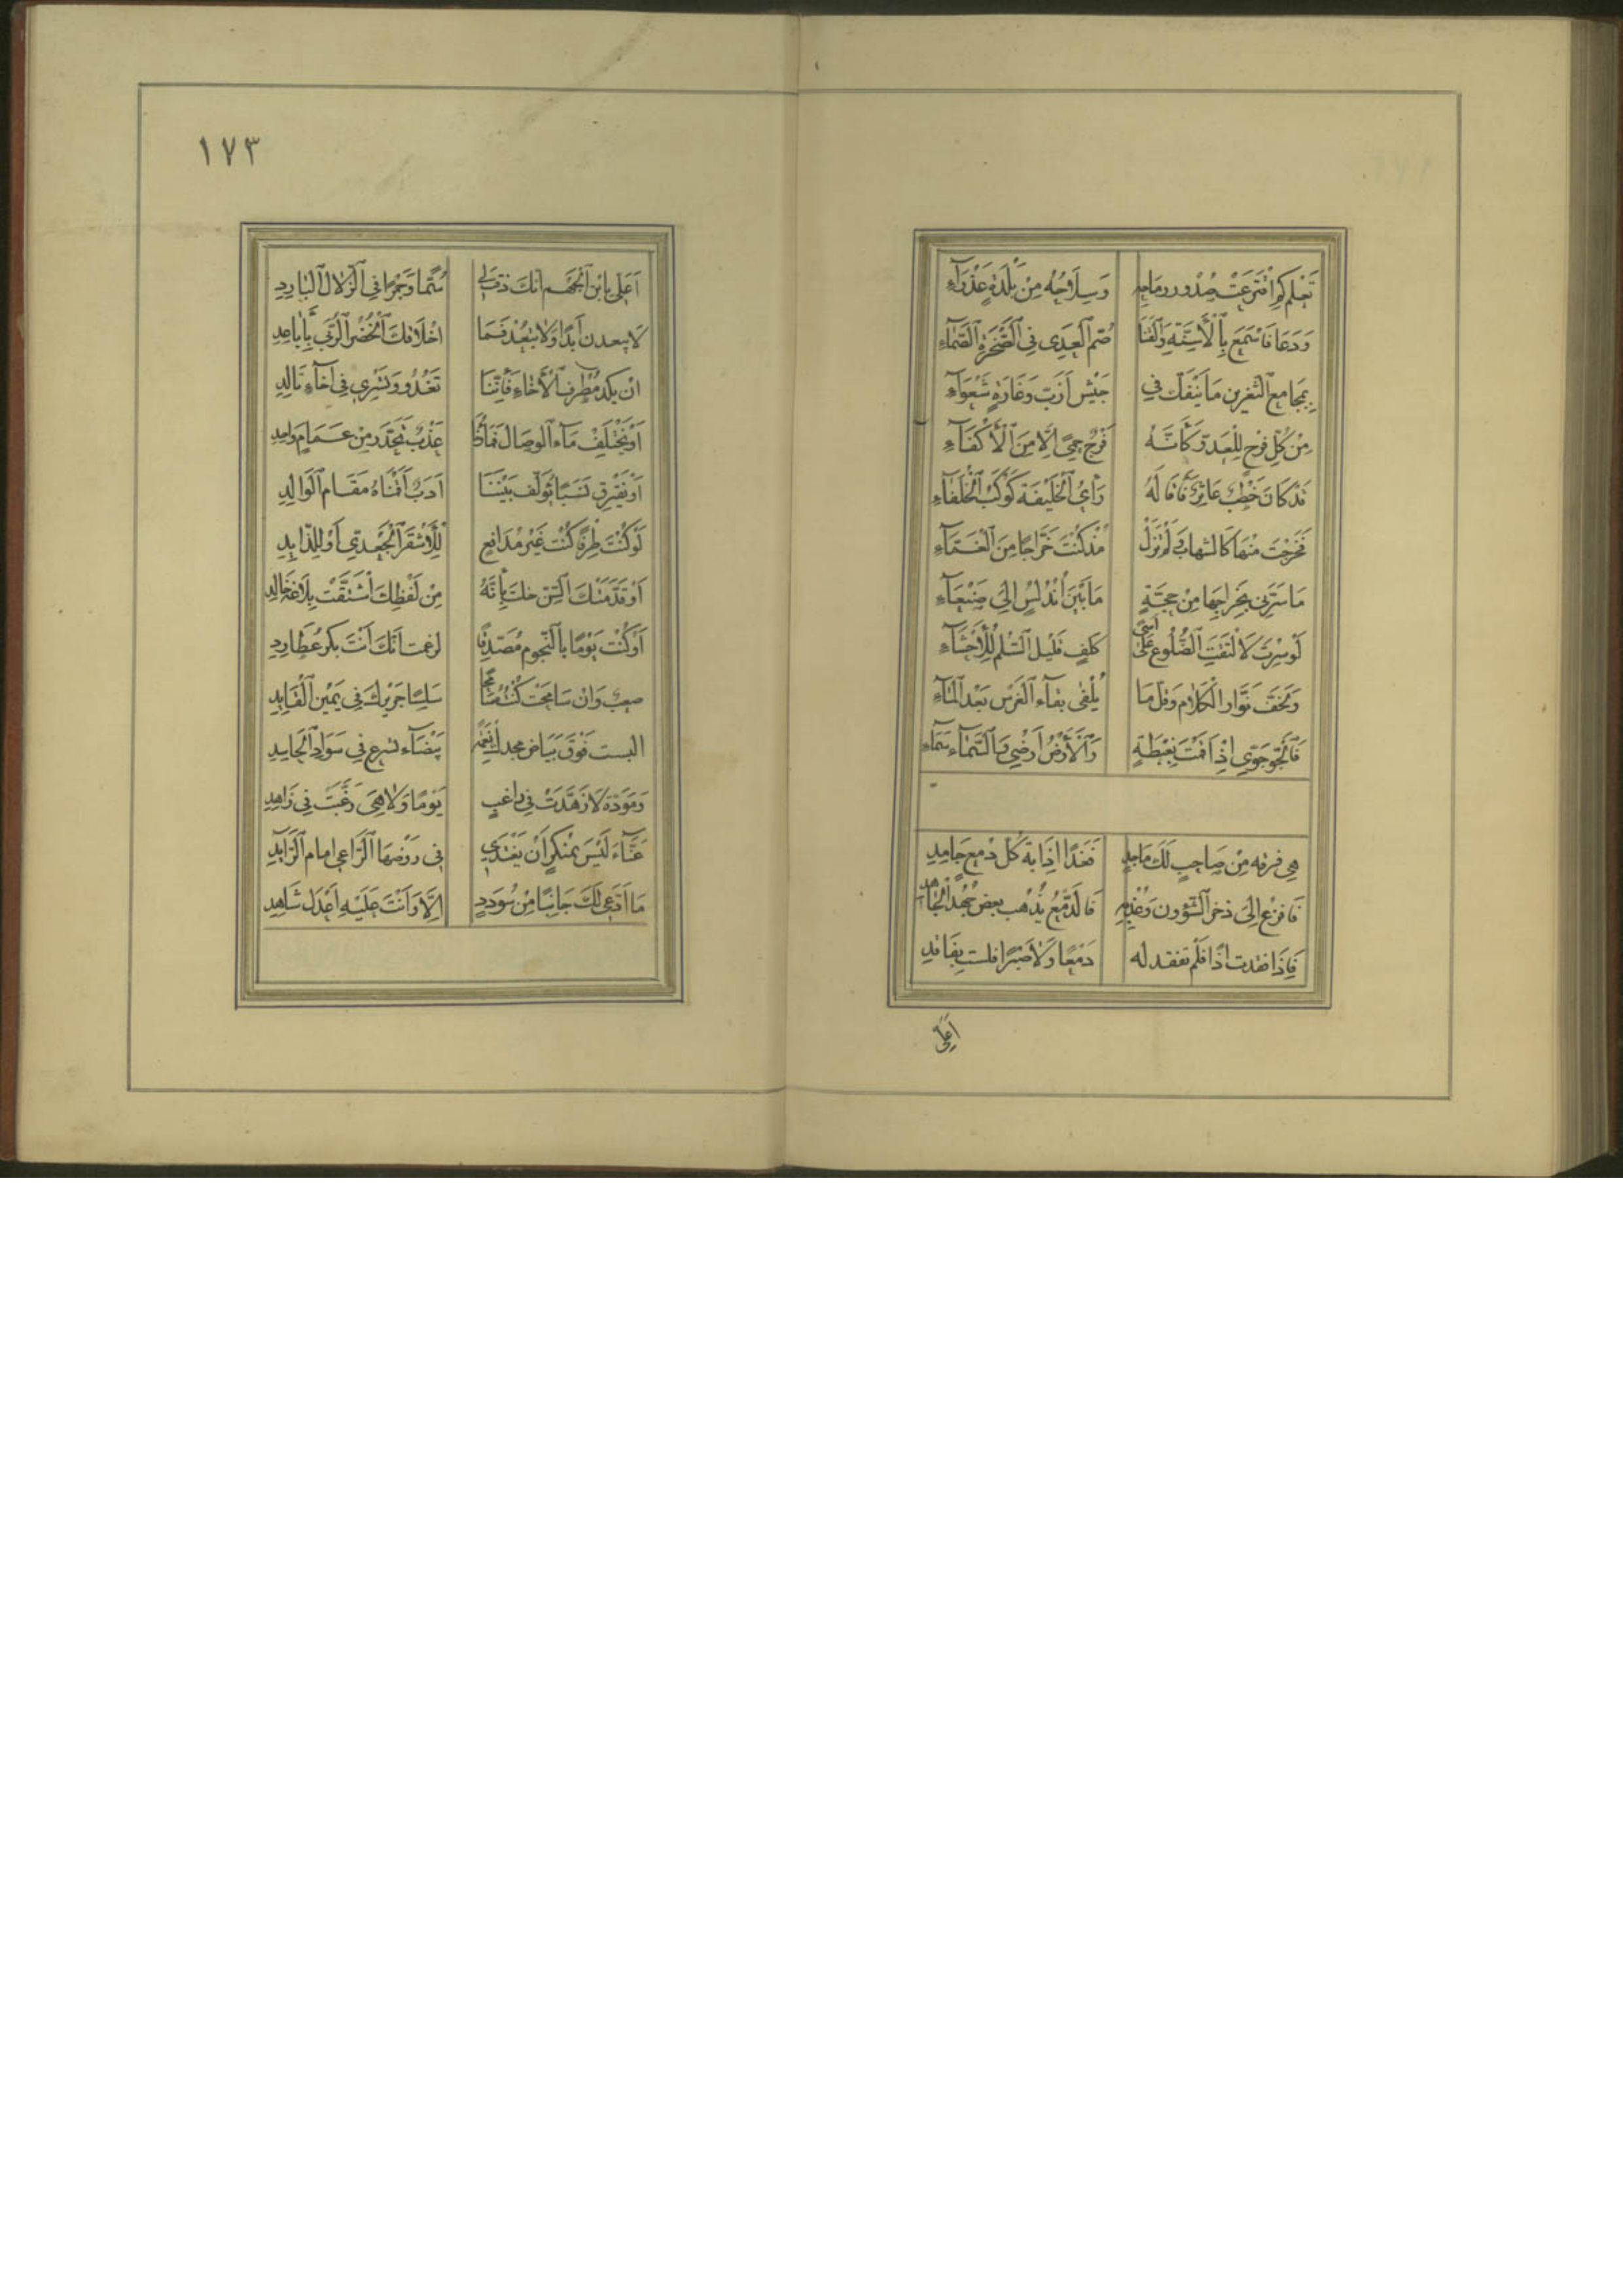 تَعْلَم كَمِ افْتَرَعَتْ صُدُور رِمَاحِهِ وَسِيُوفُهُ مِنْ بَلْدَةٍ عَذْرَآءِ
وَدَعَا فَاَسْمَعَ بِالْأَسِنَّةِ وَالْقَنَا صُمّ الْعِدَى فِى الصَّخْرَةِ الصَّمَّآءِ
بِمَجَامِع الثَغْرين مَا يَنْفَكّ فِي جَيْش اَزَبّ وَغَارَةٍ شَعْوَآءِ
مِنْ كُلّ فَرْجٍ لِلْعَدوّ كَأَنَّهُ فَرْجٌ حِمًى اِلَّا مِنَ الْأَكْفَآءِ
قَدْ كَانَ خَطْبٌ عَاثِرٌ فَأَقَالَهُ رَأْيُ الْخَلِيفَة كَوْكَبِ الْخُلَفَاءِ
فَخَرَجْتَ مِنْهَا كَالشهابِ وَلَمْ تَزَلْ مُذْ كُنْتَ خَرَّاجًا مِنَ الْغَمَّآءِ
مَا سَرَّنِى بِخِرَاجِهَا مِنْ حجَّةٍ مَا بَيْنَ اَنْدَلُسٍ اِلَى صَنْعَآءِ
لَوْ سِرْتَ لَالْتَقَتِ الضُّلُوع عَلَى اَسًى كَلِفٍ قَلِيْل السّلْم لِلْأَحْشَآءِ
وَلَجَفّ نَوَّار الْكَلَام وَقَلّ مَا يُلْفَى بَقَآء الْغَرْس بَعْدَ الْمَآءِ
فَالْجَوّ جَوّي اِنْ اَقَمْتَ بِغِبْطَةٍ وَالْأَرْضُ اَرْضِي وَالسَّمَآء سَمَآءِ
هِى فرقه مِنْ صَاحِبٍ لَكَ مَاجِدِ فَغَدًا اِذَابَة كُلّ دَمْع جَامِدِ
فَافْزَعْ اِلَى ذخر الشّؤون وَغَرْبِهِ فَالدَّمْعُ يُذْهب بعض جُهْد الْجَاهِدِ
فَاِذَا فقدت اَخًا فَلَمْ تفقد له دَمْعًا وَلَا صَبْرًا فلست بِفَاقِدِ
اَعَلِى
١٧٣
اَعَلِى يَا بْن الْجَهْم اِنّكَ دفت لى سُمًّا وَخَمْرًا فِى الزّلَال الْبَارِدِ
لَا يبعدن اَبَدًا وَلَا تَبْعُدْ فَمَا اَخْلَاقكَ الْخُضْر الرُّبَى بِأَبَاعِدِ
اِنْ يكد مُطَّرف الْأِخَاءِ فَاِنَّنَا نَغْدُو وَنَسْرِى فِى اِخَآءٍ تَالِدِ
اَوْ يَخْتَلِفْ مَآء الْوِصَال فَمَاؤُنَا عَذْبٌ تَحَدَّرَ مِنْ غَمَامٍ وَاحِدِ
اَوْ يَفْتَرِق نَسَبٌ يُؤَلِّف بَيْنَنَا اَدَبٌ اَقَمْنَاهُ مَقَام الْوَالِدِ
لَوْ كُنْتَ طِرْفًا كُنْتَ غَيْر مُدَافَعٍ لِلْأَشْقَر الْجَعْدِيّ اَوْ لِلذَّائِدِ
اَوْ قَدَّمَتْكَ السِّنّ خلت بِأَنَّهُ مِنْ لَفْظِكَ اشْتَقَّتْ بَلَاغَة خَالِدِ
اَوْ كُنْت يَوْمًا بِالنّجُوم مُصَدّقًا لزعمت اَنَّكَ اَنْتَ بِكْر عُطَارِدِ
صعب وَاِنْ سَامَحْت كُنْت مُسَامِحًا سَلِسًا جَرِيرُكَ فِى يَمِيْن الْقَايِدِ
البست فَوْقَ بَيَاض مجدكَ نِعْمَةً بَيْضَآء تسرع فِى سَوَاد الْحَاسِدِ
وَمَوَدّة لَا زَهَّدَتْ فِى رَاغبٍ يَوْمًا وَلَا هِىَ رَغَّبَتْ فِى زَاهِدِ
غَنَّآءَ لَيْسَ بِمُنْكَرٍ اَنْ يَغْتَدِي فِى رَوْضِهَا الرَّاعِى امَام الرَّايِدِ
مَا اَدَّعِى لَكَ جَانِبًا مِنْ سُودَدٍ اِلَّا وَاَنْتَ عَلَيْهِ اَعْدَل شَاهِدِ